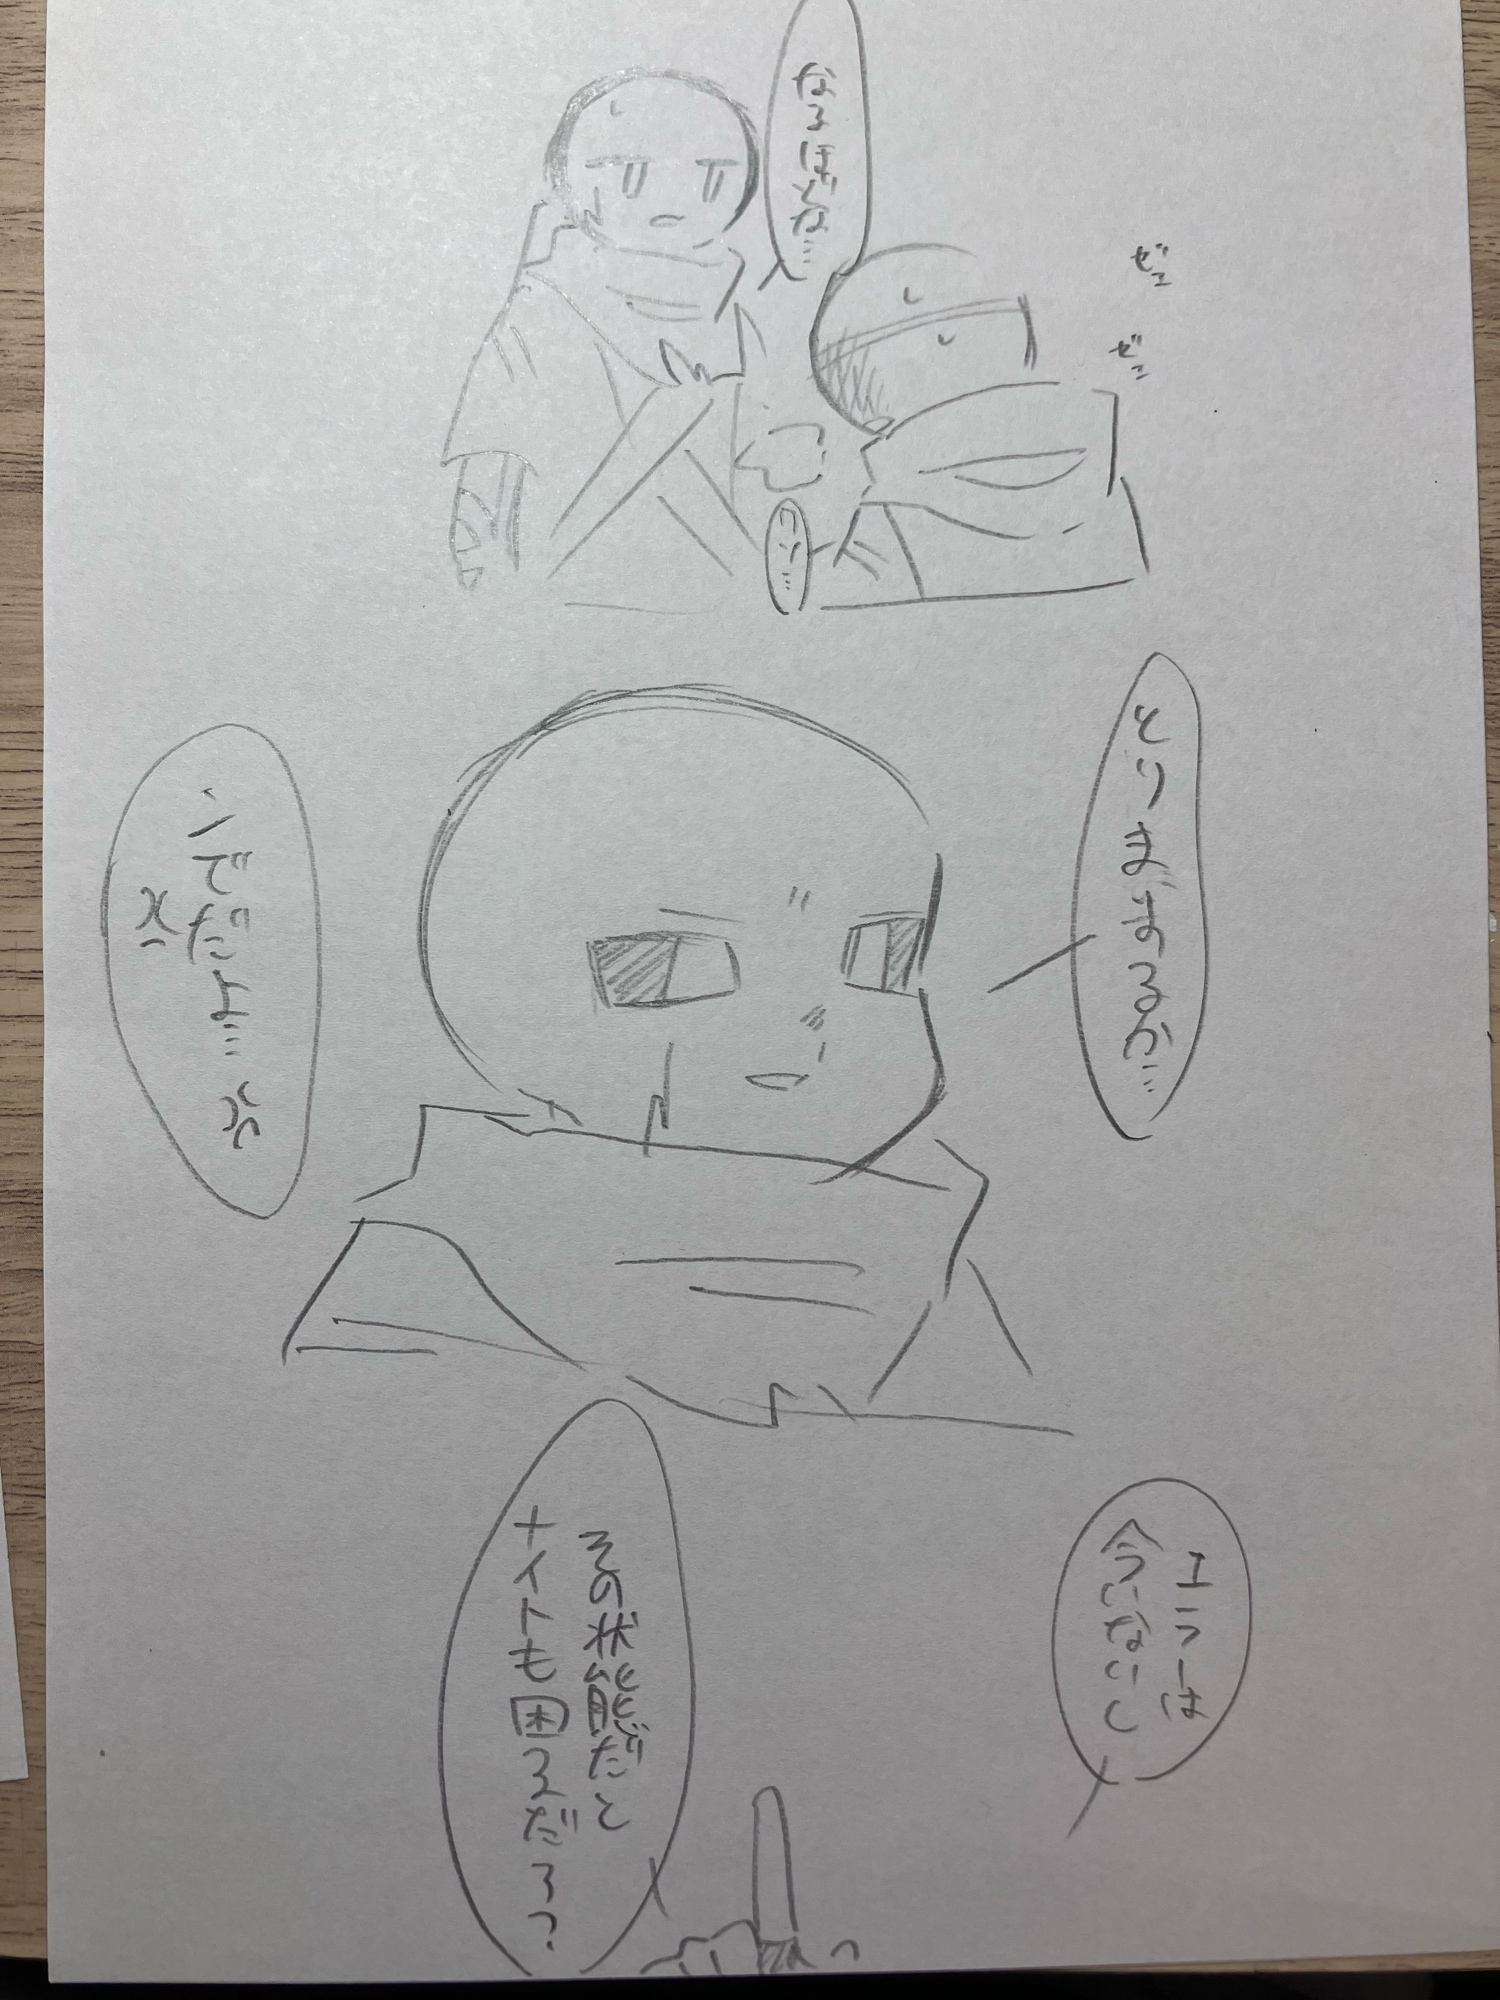 なるほどな…
ゼェ
ゼェ
コソ…
とりまずするが…
いでだよ…
ユラーは
今いないし
その状態だと
ナイトも困るだろ?